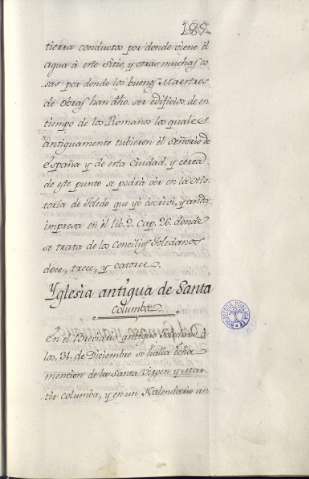 185.
tierra conductos por donde viene el
agua à este sitio, y otras muchas co
sas por donde los buenos Maestros
de obras han dho. ser edificios de en
tiempo de los Romanos los quales
antiguamente tubieron el señorio de
España y de esta Ciudad, y cerca
de este punto se podrà vèr en la Histo
toria de toledo que yò escrivì, y anda
impresa en el lib. 2. Cap. 26. donde
se trata de los Concilios Toledanos
doce, trece, y catorce.
Yglesia antigua de Santa
Columba.
En el Breviario antiguo
los 31. de Diciembre se halla hecha
mencion de la Santa Virgen y mar
tir columba, y en un Kalendario an